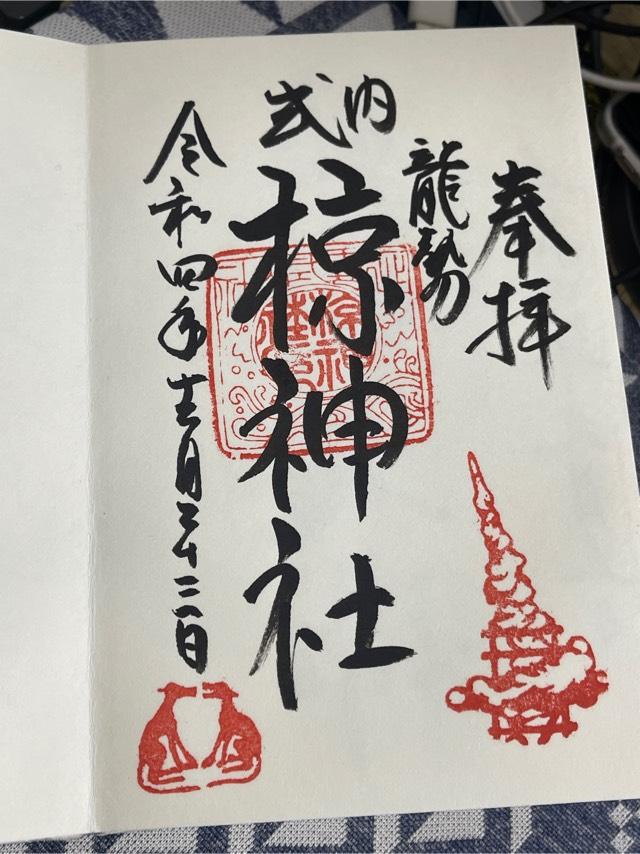 奉拝
龍勢
式内
椋神社
令和四年十二月二十二日